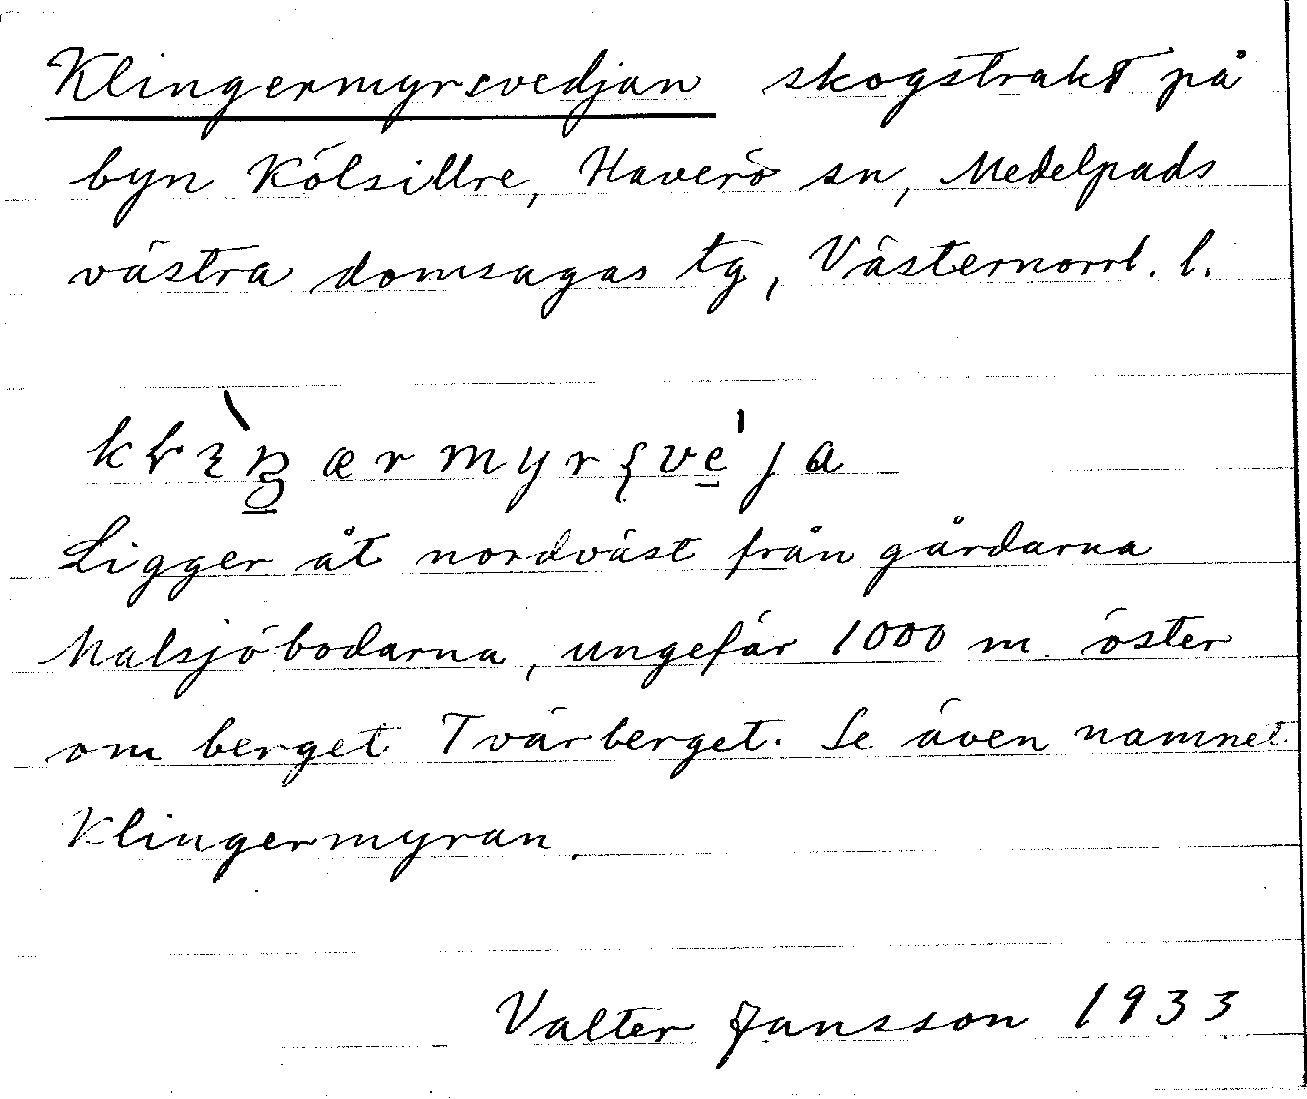 Klingermyrsvedjan skogstrakt på
byn Kölsillre, Haverö sn, Medelpads
västra domsagas tg, Västernorrl. l.
Ligger åt nordväst från gårdarna
Malsjöbodarna, ungefär 1000 m. öster
om berget Tvärberget. Se även namnet
Klingermyran.
Valter Jansson 1933